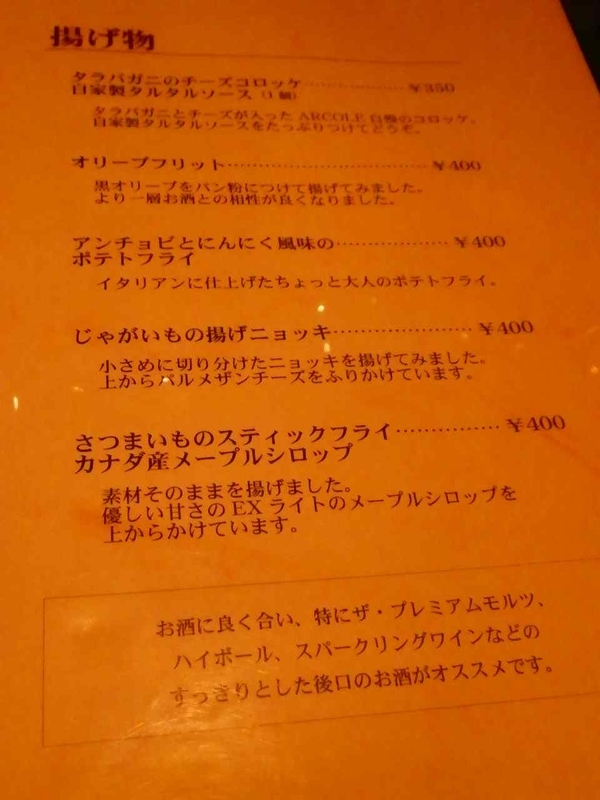 揚げ物
タラバガニのチーズコロッケ……………¥350
自家製タルタルソース (1個)
タラバガニとチーズが入った ARCOLE 自慢のコロッケ。
自家製タルタルソースをたっぷりつけてどうぞ。
オリーブフリット……………………………¥400
黒オリーブをパン粉につけて揚げてみました。
より一層お酒との相性が良くなりました。
アンチョビとにんにく風味の……………¥400
ポテトフライ
イタリアンに仕上げたちょっと大人のポテトフライ。
じゃがいもの揚げニョッキ…………………¥400
小さめに切り分けたニョッキを揚げてみました。
上からパルメザンチーズをふりかけています。
さつまいものスティックフライ……………¥400
カナダ産メープルシロップ
素材そのままを揚げました。
優しい甘さの EX ライトのメープルシロップを
上からかけています。
お酒に良く合い、特にザ・プレミアムモルツ、
ハイボール、スパークリングワインなどの
すっきりとした後口のお酒がオススメです。